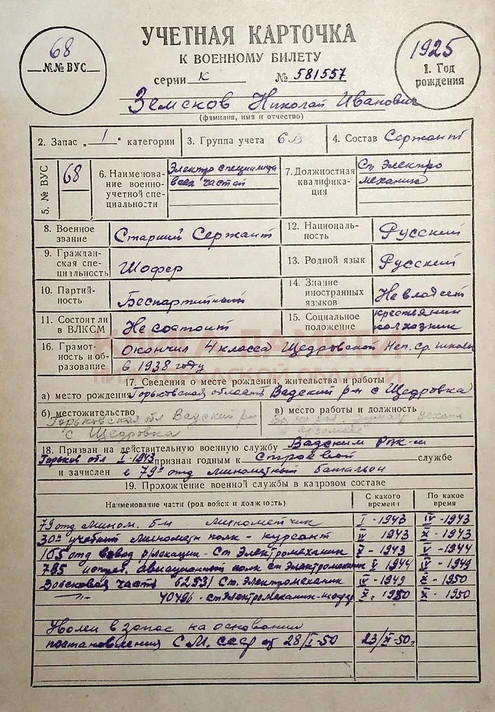 68
№№ ВУС
УЧЕТНАЯ КАРТОЧКА
К ВОЕННОМУ БИЛЕТУ
серии К № 581557
1925
1. Год рождения
Земсков Николай Иванович
(фамилия, имя и отчество)
2. Запас „1“ категории
3. Группа учета 6
4. Состав Сержант
5. № ВУС 68
6. Наименование военно-учетной специальности
всех частей
7. Должностная квалификация
Ст. Электро
механик
8. Военное звание Старший Сержант
12. Национальность Русский
9. Гражданская специальность Шофер
13. Родной язык Русский
10. Партийность Беспартийный
14. Знание иностранных языков Не владеет
11. Состоит ли в ВЛКСМ Не состоит
15. Социальное положение крестьянин
колхозник
16. Грамотность и образование Окончил 4 класса Щедровской Неп. Ср. школы
в 1938 году
17. Сведения о месте рождения, жительства и работы
а) место рождения Горьковская область Вадский р-н с Щедровка
б) местожительство
Горьковская обл Вадский р-н
с Щедровка
в) место работы и должность
18. Призван на действительную военную службу Вадским РВК-м
Горьков обл I-1943 признан годным к Строевой службе
и зачислен в 79 отд минометный батальон
19. Прохождение военной службы в кадровом составе
Наименование части (род войск и должность)
С какого времени
По какое время
79 отд. Мином. б-н Минометчик I-1943 IV-1943
30й учебный Миномет. полк - курсант IV 1943 X-1943
165 отд взвод - Ст Электромеханик X-1943 V-1944
785 авиационный полк Ст Электромеханик V 1944 IV-1949
Войсковая часть 62531 Ст. Электромеханик IV-1949 -1950
-"- 40496 - ст Электромеханик 1950 X-1950
Уволен в запас на основании
постановления С.М. СССР от 28/ -50 23/ -50